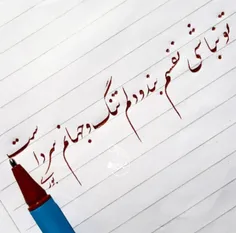 تو نباشی نفسم بند و دلم تنگ و جهانم سرد است